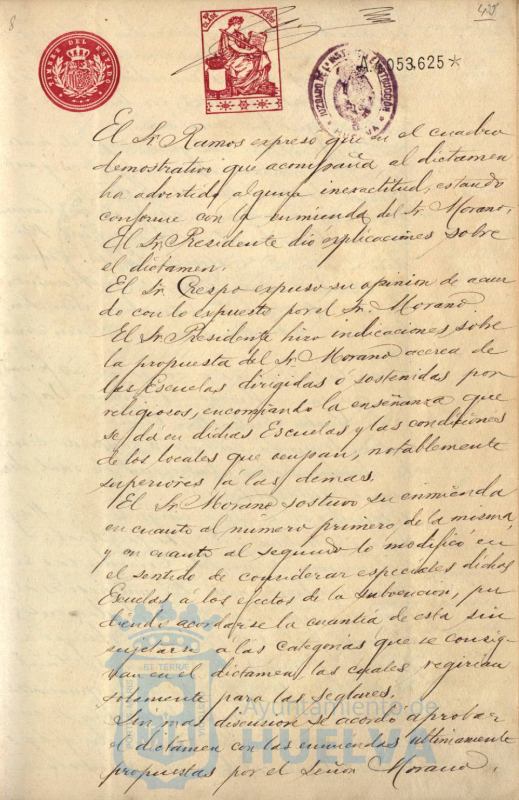 8
45
TIMBRE DEL ESTADO
A.0.053.625*
JUZGADO DE 1ª INSTANCIA E INSTRUCCIÓN
HUELVA
El Sr. Ramos expresó que en el cuadro
demostrativo que acompaña al dictamen
ha advertido alguna inexactitud, estando
conforme con la enmienda del Sr. Morano.
El Sr. Presidente dió explicaciones sobre
el dictamen.
El Sr. Crespo expuso su opinion de acuer
do con lo expuesto por el Sr. Morano
El Sr. Presidente hizo indicaciones, sobre
la propuesta del Sr. Morano acerca de
las Escuelas dirigidas ó sostenidas por
religiosos, encomiando la enseñanza que
se dá en dichas Escuelas y las condiciones
de los locales que ocupan, notablemente
superiores á las demas.
El Sr. Morano sostuvo su enmienda
en cuanto al número primero de la misma,
y en cuanto al segundo lo modificó en
el sentido de considerar especiales dichas
Escuelas a los efectos de la subvencion, pu
diendo acordarse la cuantía de esta sin
sujetarse á las categorias que se consig-
nan en el dictamen, las cuales regirian
solamente para las seglares.
Sin mas discusion se acordó aprobar
el dictamen con las enmiendas ultimamente
propuestas por el Señor Morano.
Ayuntamiento de
HUELVA